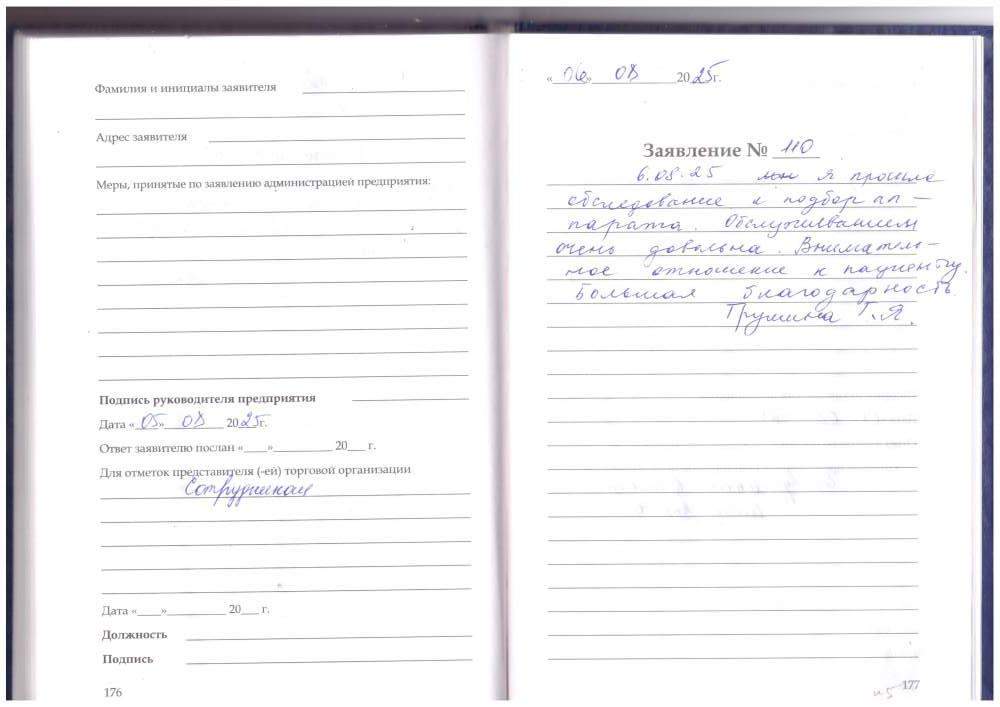 Фамилия и инициалы заявителя
Адрес заявителя
Меры, принятые по заявлению администрацией предприятия:
Подпись руководителя предприятия
Дата «05» 08 2025г.
Ответ заявителю послан «____»__________ 20___ г.
Для отметок представителя (-ей) торговой организации
Сотрудникам
Дата «____»__________ 20___ г.
Должность
Подпись
176
«06» 08 2025г.
Заявление № 110
6.08.25 я прошла
обследование и подбор ап-
парата. Обслуживанием
очень довольна. Вниматель-
ное отношение к пациенту.
Большая благодарность
Г.Я.
177